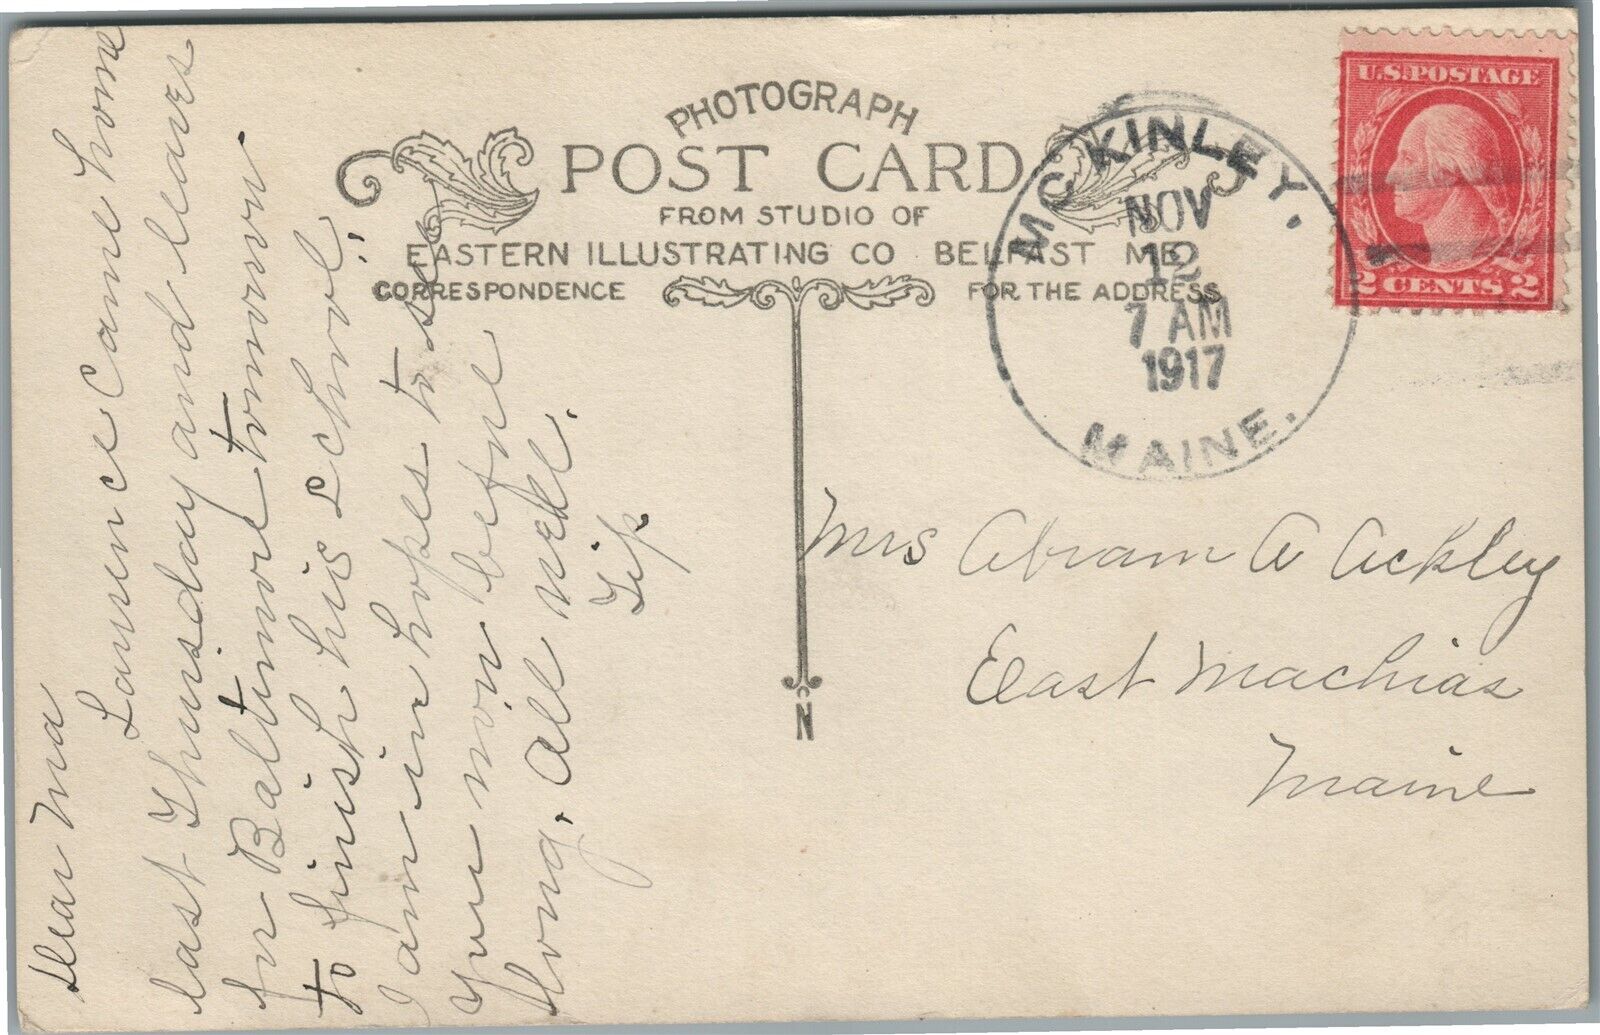 PHOTOGRAPH
POST CARD
FROM STUDIO OF
EASTERN ILLUSTRATING CO BELFAST ME.
CORRESPONDENCE
FOR THE ADDRESS
N
MCKINLEY.
NOV
12
7 AM
1917
MAINE.
U.S. POSTAGE
2 CENTS 2
Dear Ma
Lawrence came home
last Thursday and leaves
for Baltimore tomorrow
to finish his school.
I am in hopes to see
you now before
long. All well.
Tip
Mrs Abram A Ackley
East Machias
Maine